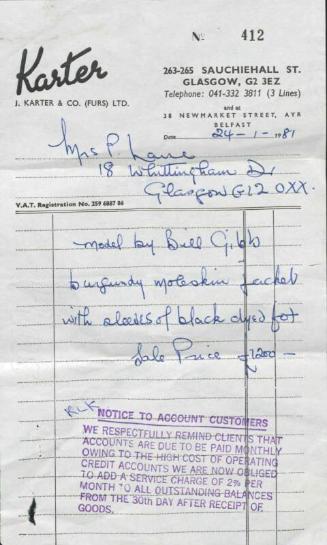 No. 412
Karter
J. KARTER & CO. (FURS) LTD.
263-265 SAUCHIEHALL ST.
GLASGOW, G2 3EZ
Telephone: 041-332 3811 (3 Lines)
and at
38 NEWMARKET STREET, AYR
BELFAST
Date 24-1-1981
Mrs P. Lane
18 Whittingham Dr
Glasgow G12 0XX.
V.A.T. Registration No. 259 6887 86
model by Bill Gibb
burgundy moleskin jacket
with sleeves of black dyed fox
Sale Price £1200 —
NOTICE TO ACCOUNT CUSTOMERS
WE RESPECTFULLY REMIND CLIENTS THAT
ACCOUNTS ARE DUE TO BE PAID MONTHLY
OWING TO THE HIGH COST OF OPERATING
CREDIT ACCOUNTS WE ARE NOW OBLIGED
TO ADD A SERVICE CHARGE OF 2% PER
MONTH TO ALL OUTSTANDING BALANCES
FROM THE 30th DAY AFTER RECEIPT OF
GOODS.